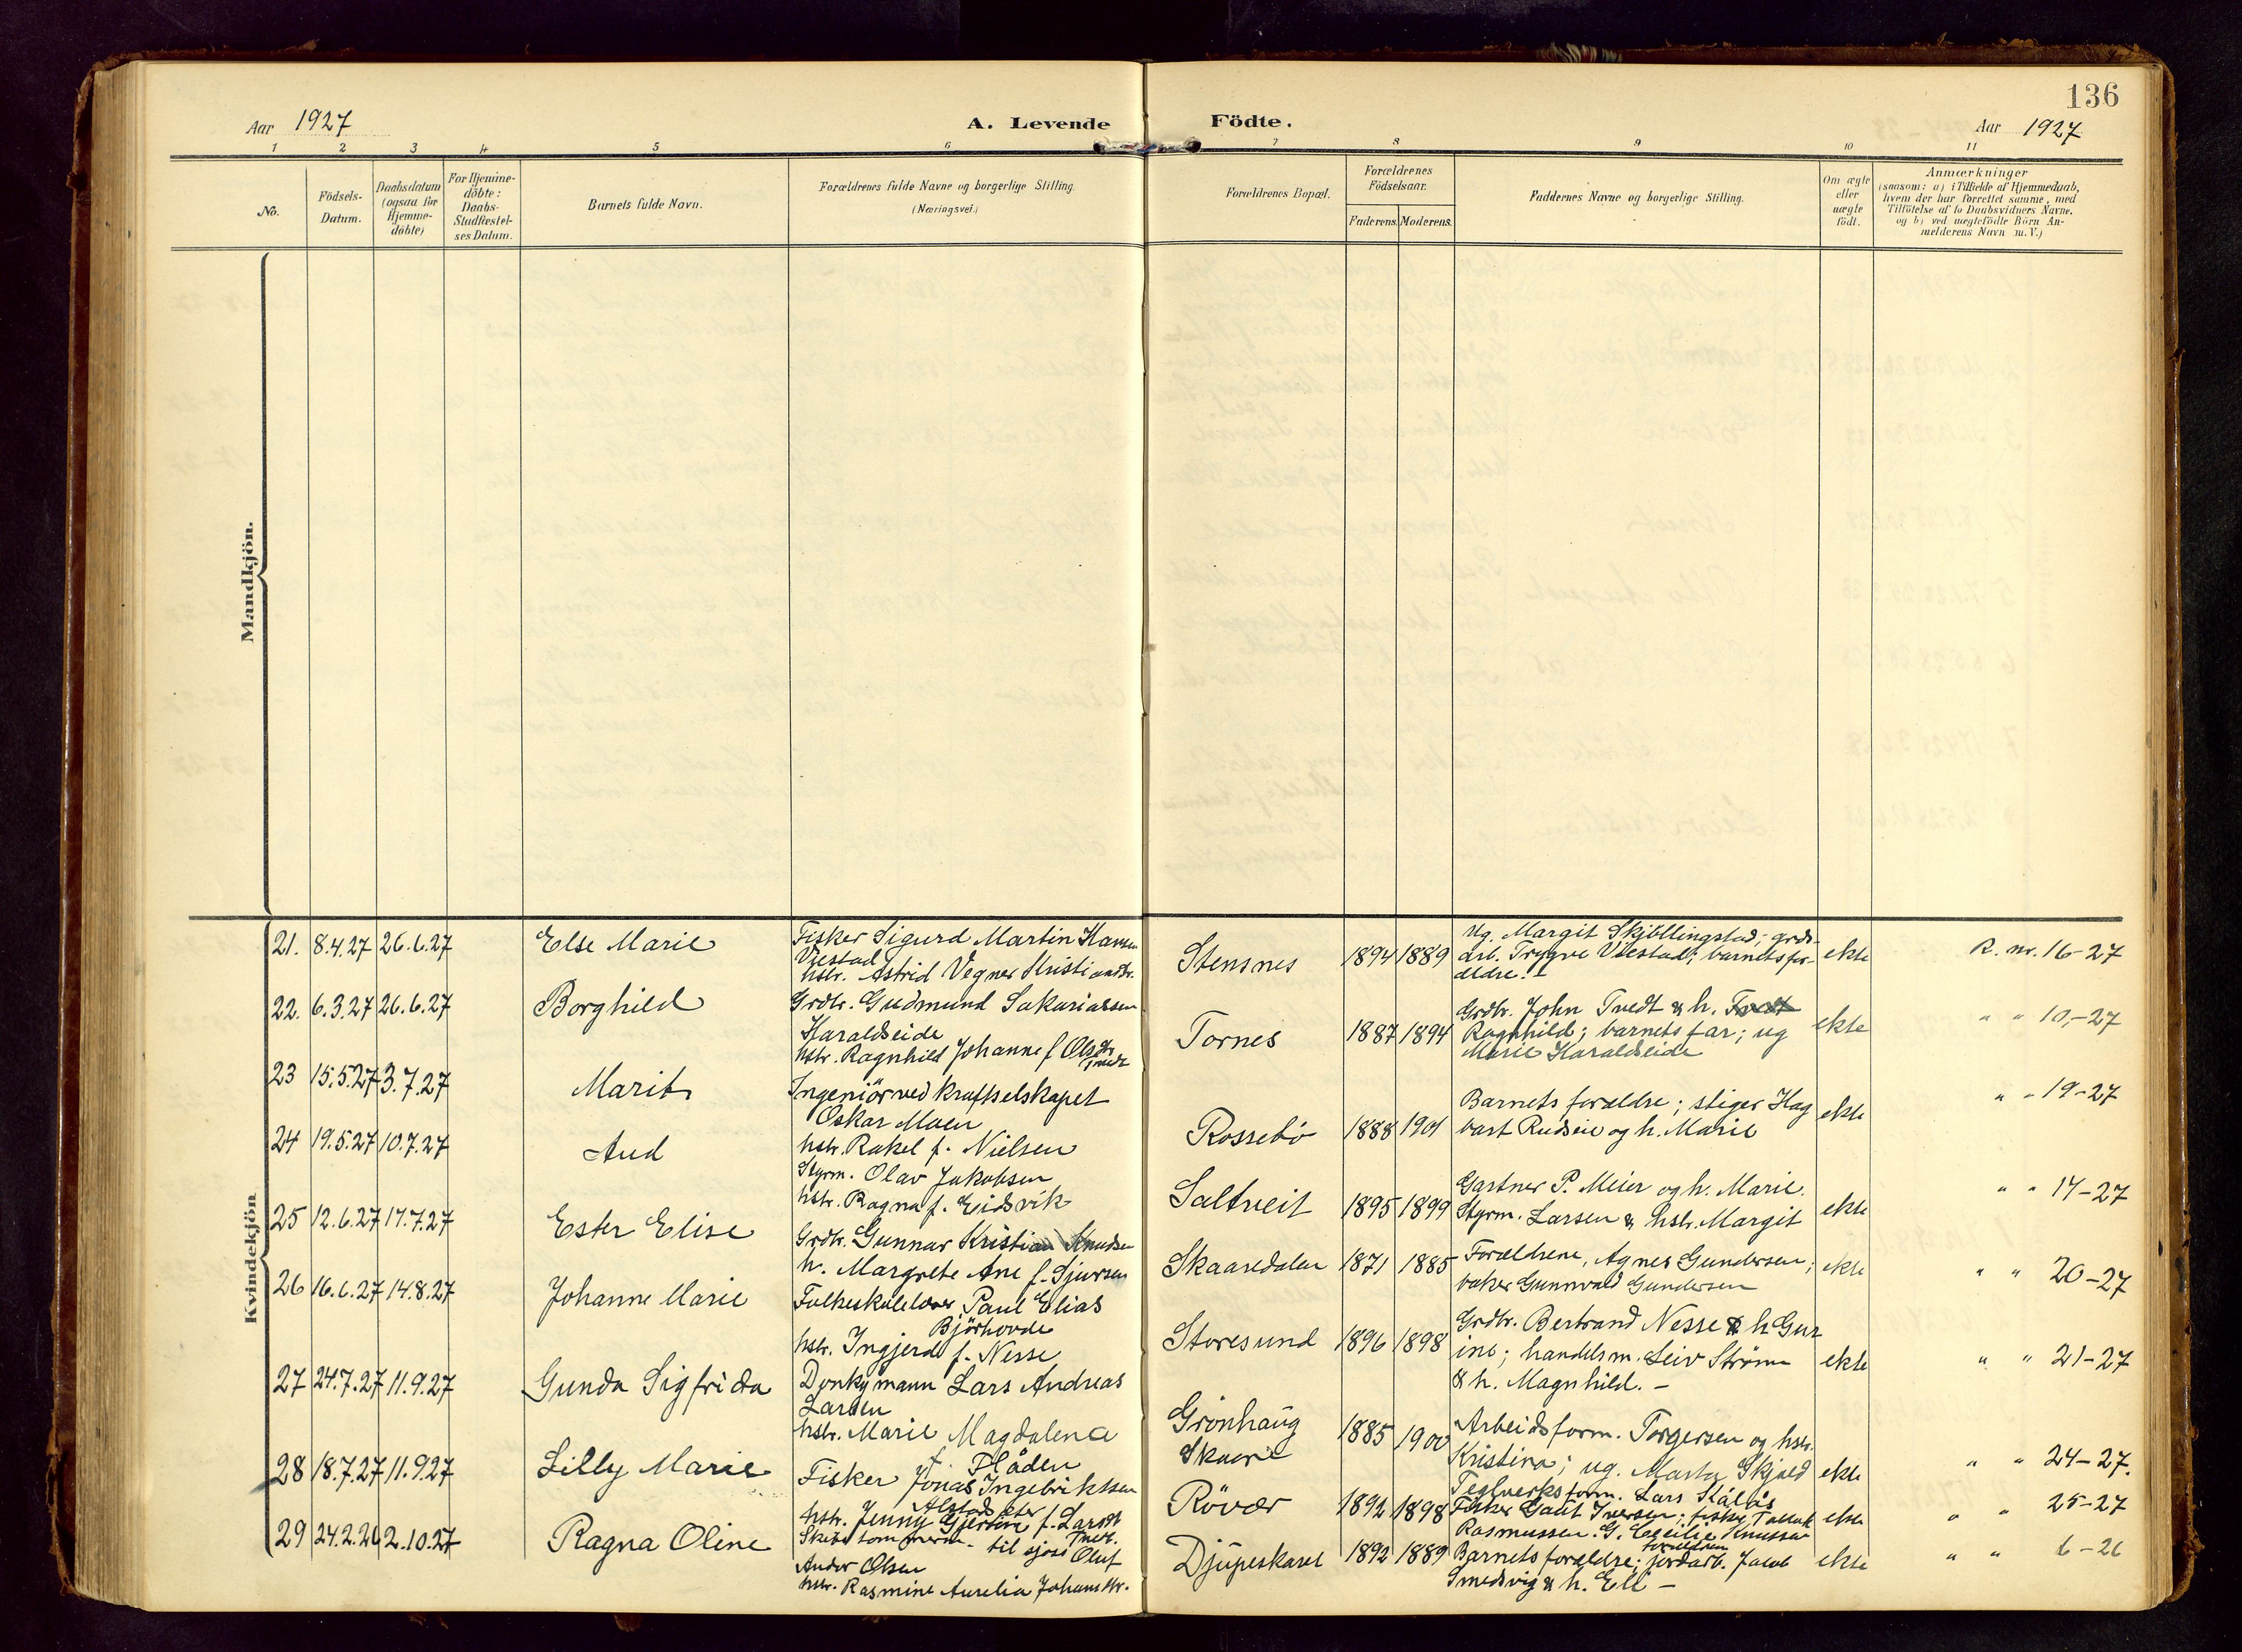 136
Aar 1927
A. Levende Födte.
Aar 1927
1 2 3 4 5 6 7 8 9 10 11
No.
Födsels-
Datum.
Daabsdatum
(ogsaa for
Hjemme-
döbte)
For Hjemme-
döbte:
Daabs-
Stadfæstel-
ses Datum.
Barnets fulde Navn.
Forældrenes fulde Navne og borgerlige Stilling.
(Næringsvei.)
Forældrenes Bopæl.
Forældrenes
Födselsaar.
Faderens. Moderens.
Faddernes Navne og borgerlige Stilling.
Om ægte
eller
uægte
födt.
Anmærkninger
(saasom: a) i Tilfælde af Hjemmedaab,
hvem der har forrettet samme, med
Tilföielse af to Daabsvidners Navne.
og b) ved uægtefödte Börn An-
melderens Navn m. V.)
Mandkjön.
Kvindekjön
21. 8.4.27 26.6.27 Else Marie
Fisker Sigurd Martin Hansen
Viestad
hstr. Astrid Vegner Kristiandtr.
Stensnes 1894 1889
Ug. Margit Skjöllingstad; grds-
arb. Trygve Viestad; barnets for-
eldre.-
ekte R. nr. 16-27
22. 6.3.27 26.6.27 Borghild
Grdbr. Gudmund Sakariassen
Haraldseide
hstr. Ragnhild Johanne f Olsdtr
Tvedt
Tornes 1887 1894
Grdbr. John Tvedt & h. Tvedt
Ragnhild; barnets far; ug
Marie Haraldseide
ekte " " 10,-27
23 15.5.27 3.7.27 Marit
Ingeniör ved kraftselskapet
Oskar Moen
hstr. Rakel f. Nielsen
Rossebö 1888 1901
Barnets forældre; stiger Hag
bart Rudseie og h. Marie
ekte " " 19-27
24 19.5.27 10.7.27 Aud
Styrm. Olav Jakobsen
hstr. Ragna f. Eidsvik
Saltveit 1895 1899
Gartner P. Meier og h. Marie.
Styrm. Larsen & hstr. Margit
ekte " " 17-27
25 12.6.27 17.7.27 Ester Elise
Grdbr. Gunnar Kristian Knudsen
h. Margrete Ane f. Sjursen
Skaaredalen 1871 1885
Forældrene, Agnes Gundersen;
baker Gunnvald Gundersen
ekte " " 20-27
26 16.6.27 14.8.27 Johanne Marie
Folkeskolelærer Paul Elias
Björhovde
hstr. Ingjerd f. Nesse
Storesund 1896 1898
Grdbr. Bertrand Nesse & h Gur
ine; handelsm. Leiv Ströme
& h. Magnhild. -
ekte " " 21-27
27 24.7.27 11.9.27 Gunda Sigfrida
Donkymann Lars Andreas
Larsen
hstr. Marie Magdalena
f. Flåden
Grönhaug
Skaare
1885 1900
Arbeidsform. Torgersen og hstr.
Kristina; ug. Marta Skjold
Teglverksform. Lars Stálås
ekte " " 24-27.
28 18.7.27 11.9.27 Lilly Marie
Fisker Jonas Ingebriktsen
hstr. Jenny Gjertine f. Larsdt
Rövær 1892 1898
Fisker Gaut Iversen; fisker
Rasmussen. G. Cecilie Knutsen
foreldrene
ekte " " 25-27
29 24.2.26 2.10.27 Ragna Oline
Skibstömmerm. til sjøss Oluf
Ander Olsen
hstr. Rasmine Aurelia Johansdtr.
Djupeskaret 1892 1889
Barnets forældre; jordarb. Jacob
Smedsvig & h. Elí -
ekte " " 6-26